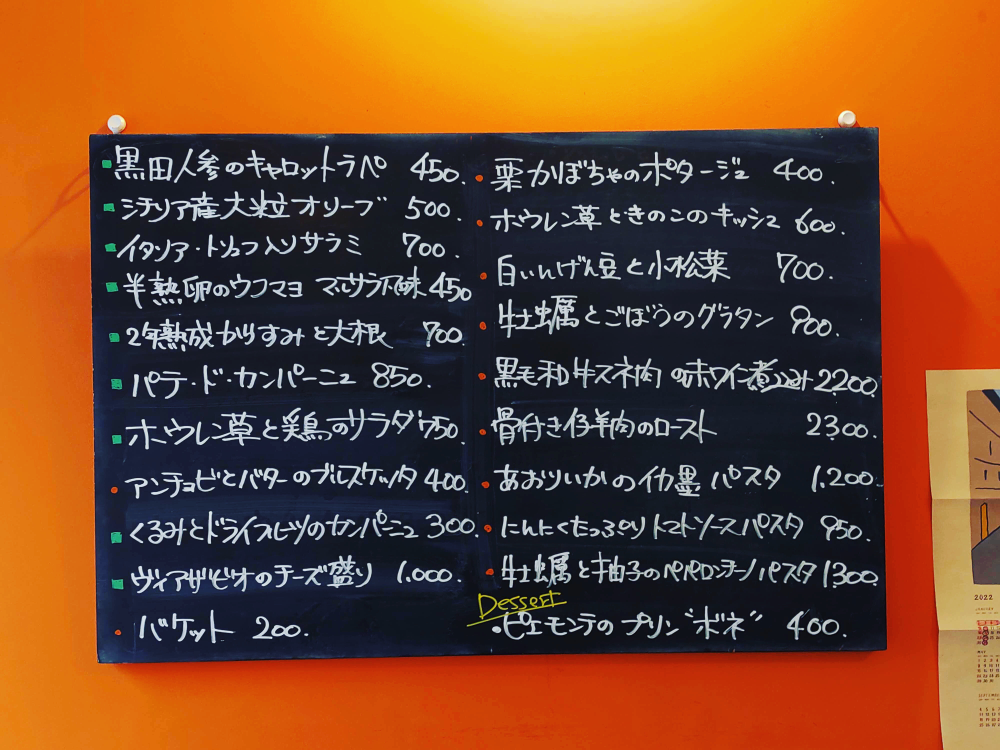 黒田人参のキャロットラペ 450.
シチリア産大粒オリーブ 500.
イタリア・トリュフ入りサラミ 700.
半熟卵のウフマヨ マルサラ風味 450
2年熟成からすみと大根 700.
パテ・ド・カンパーニュ 850.
ホウレン草と鶏のサラダ 750.
アンチョビとバターのブルスケッタ 400.
くるみとドライフルーツのカンパーニュ 300.
ヴィアザビオのチーズ盛り 1.000.
バケット 200.
栗かぼちゃのポタージュ 400.
ホウレン草ときのこのキッシュ 600.
白いんげん豆と小松菜 700.
牡蠣とごぼうのグラタン 900.
黒毛和牛スネ肉のホワイト煮込み 2200.
骨付き仔羊肉のロースト 2300.
あおりいかのイカ墨パスタ 1.200.
にんにくたっぷりトマトソースパスタ 950.
牡蠣と柚子のペペロンチーノパスタ 1300.
Dessert
・ピエモンテのプリン"ボネ" 400.
2022